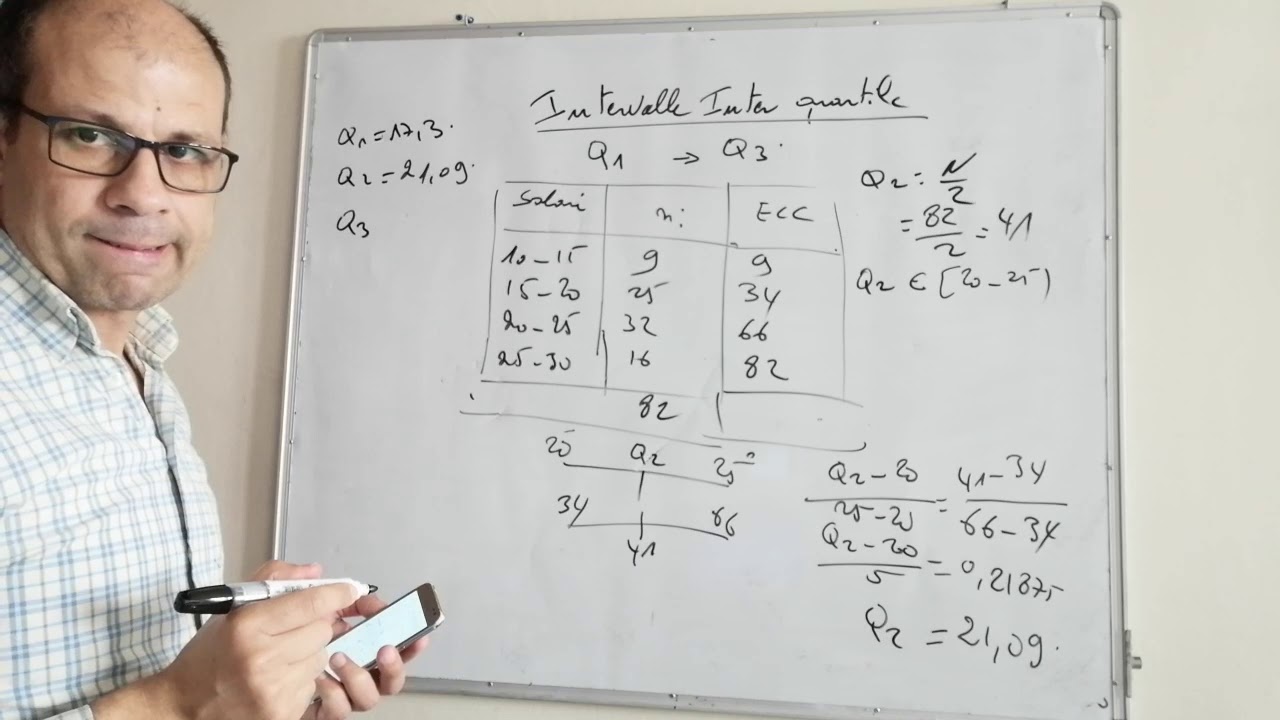 Intervalle Inter quartile
Q1 = 17,3.
Q2 = 21,09.
Q3
Q1 → Q3.
Salari ni ECC
10-15 9 9
15-20 25 34
20-25 32 66
25-30 16 82
82
Q2 = N/2
= 82/2 = 41
Q2 ∈ [20-25)
20 Q2 25
34 41 66
Q2-20/25-20 = 41-34/66-34
Q2-20/5 = 0,21875
Q2 = 21,09.